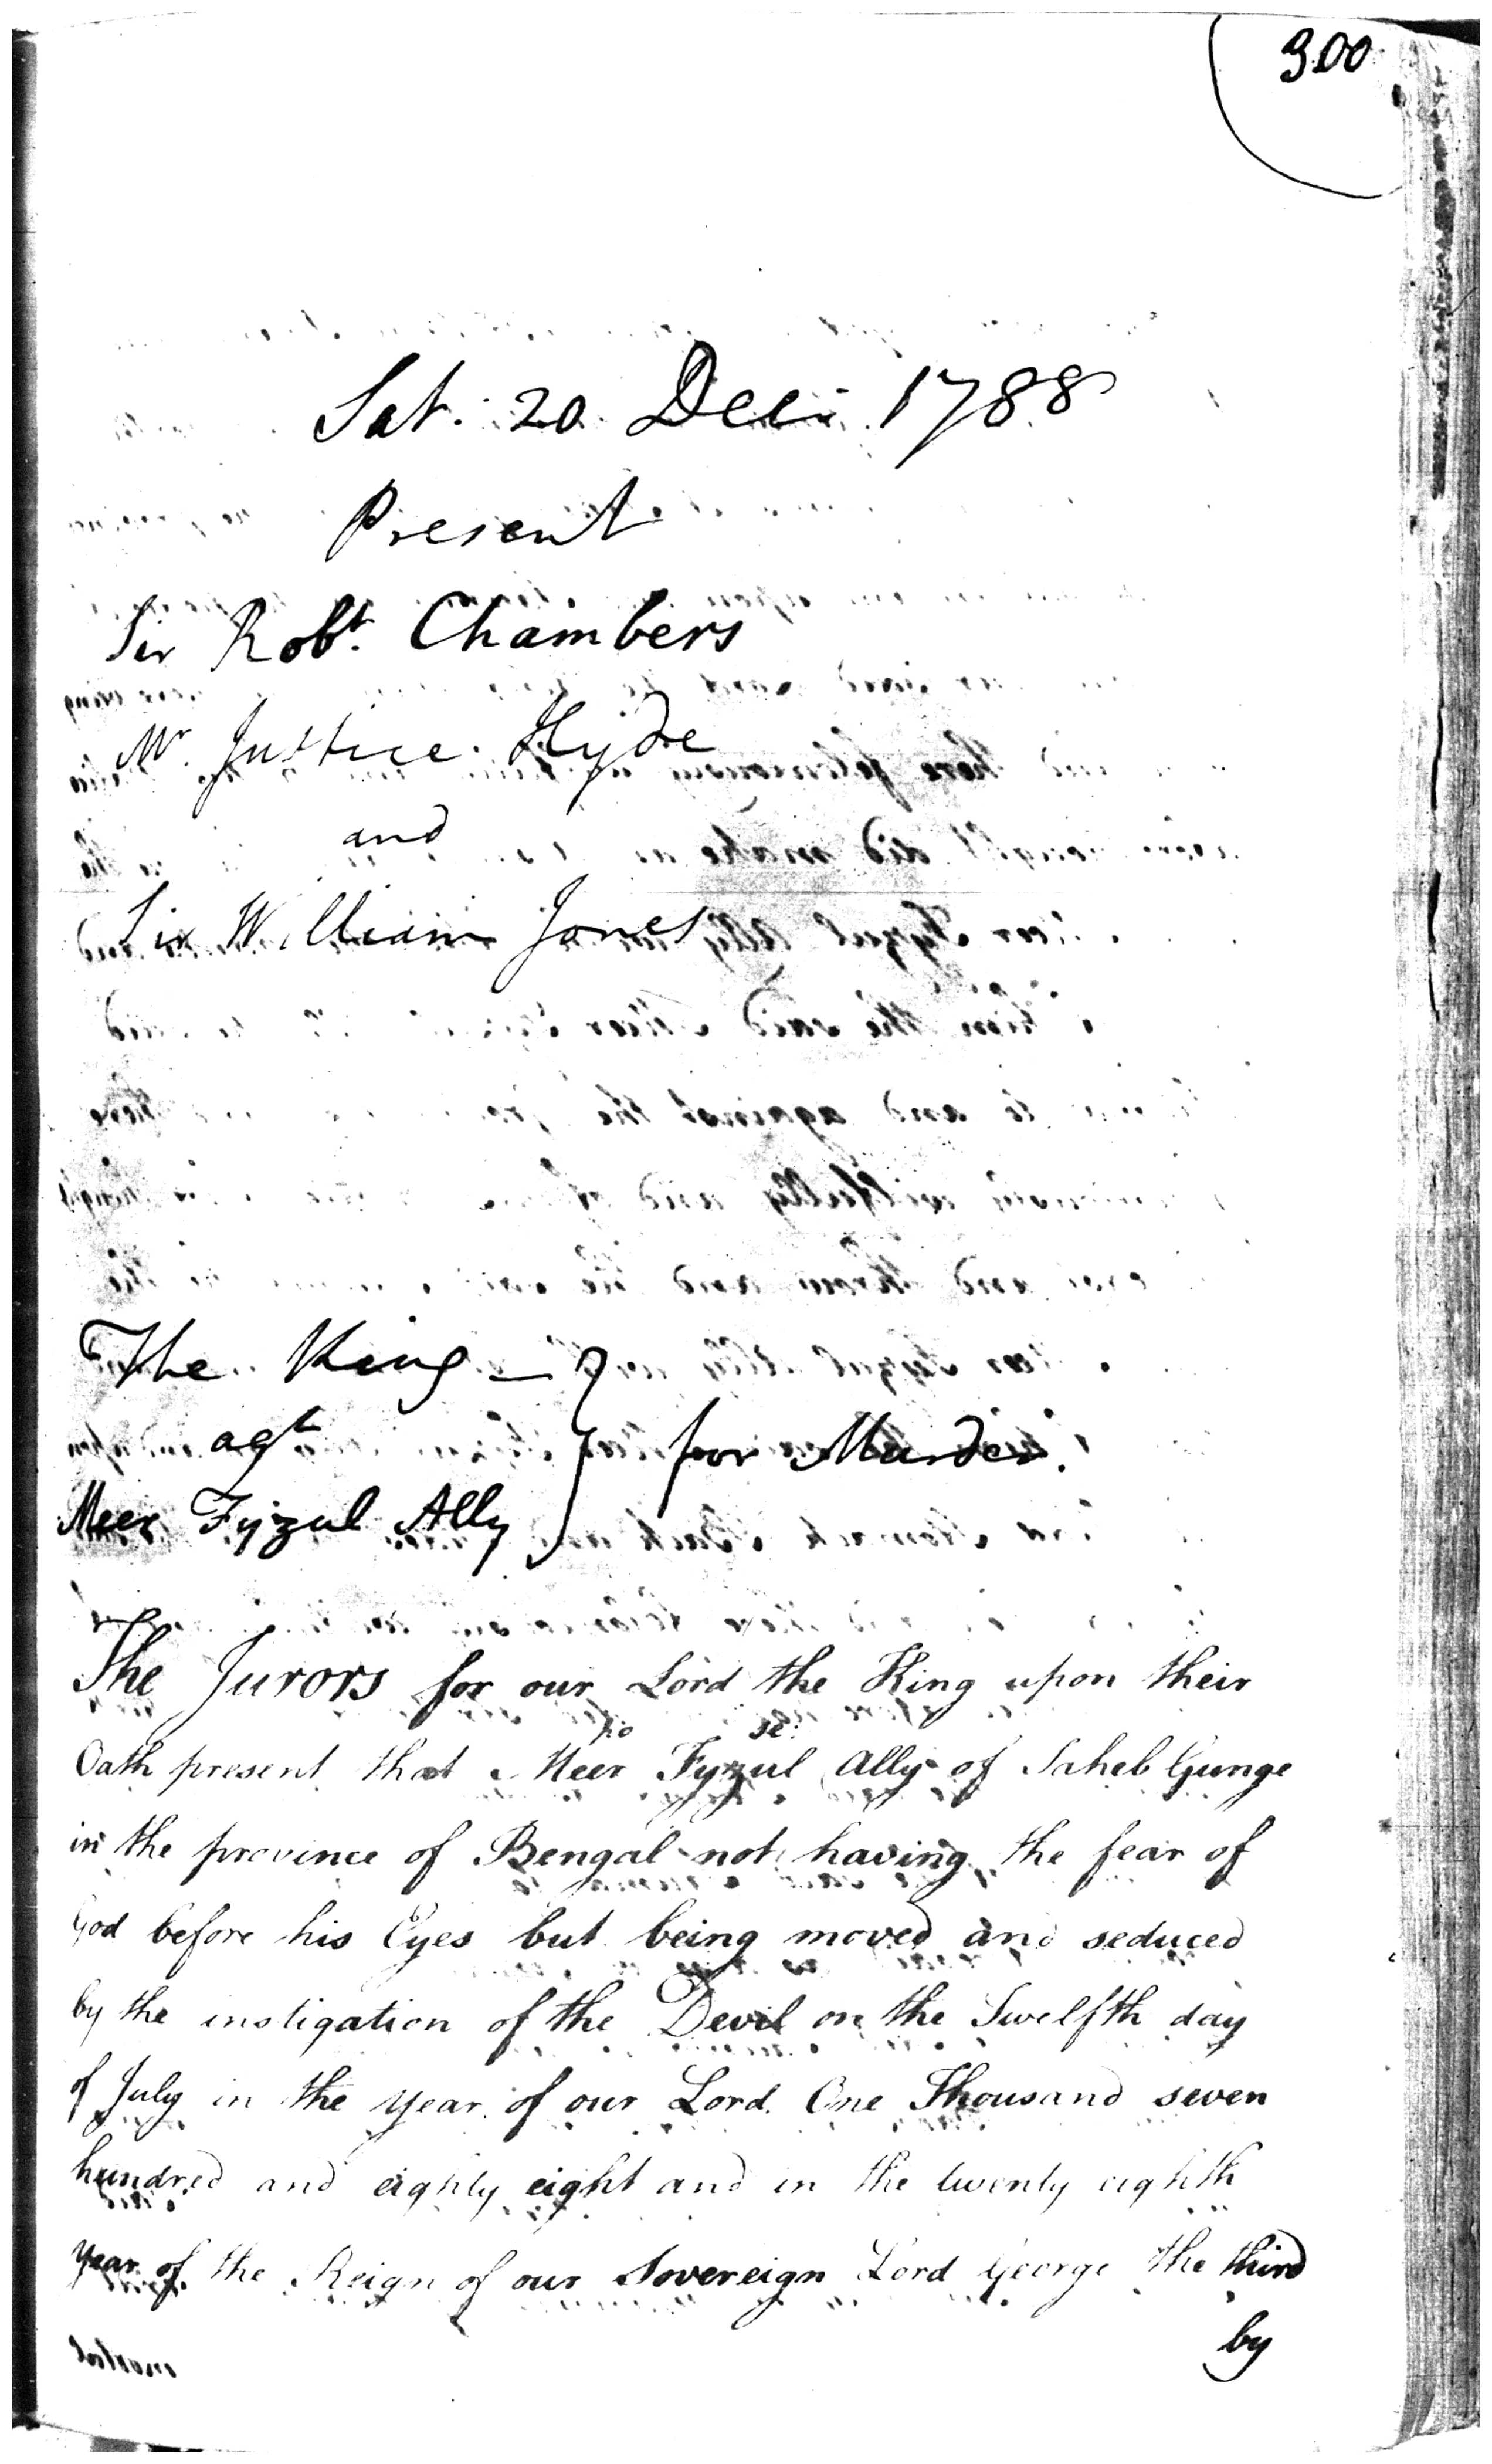 300
Sat. 20 Decr. 1788
Present
Sir Robt. Chambers
Mr. Justice Hyde
and
Sir William Jones
The King
agt
for Murder.
Meer Fyzul Ally
The Jurors for our Lord the King upon their
po se:
Oath present that Meer Fyzul Ally of Saheb Gunge
in the province of Bengal not having the fear of
God before his Eyes but being moved and seduced
by the instigation of the Devil on the Twelfth day
of July in the Year of our Lord One Thousand seven
hundred and eighty eight and in the twenty eighth
Year of the Reign of our Sovereign Lord George the third
by